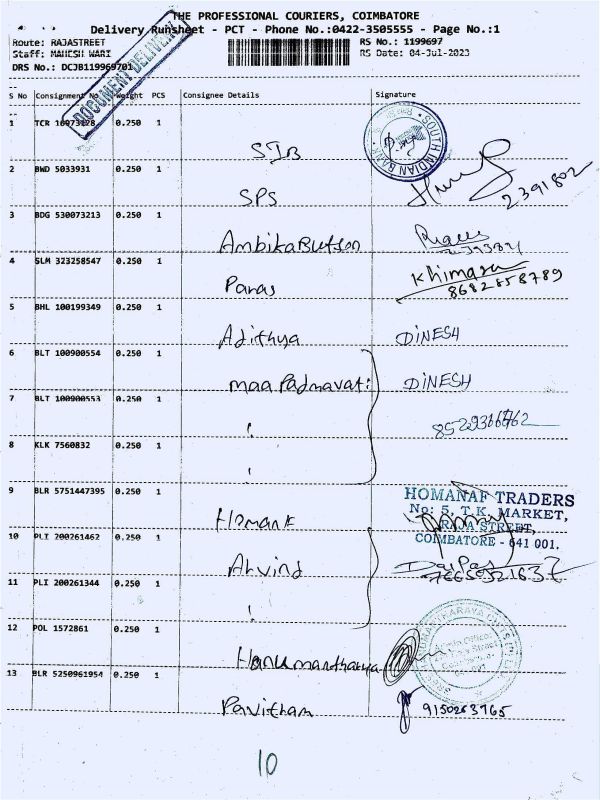 THE PROFESSIONAL COURIERS, COIMBATORE
Delivery Runsheet - PCT - Phone No.:0422-3505555 - Page No.:1
Route: RAJASTREET RS No.: 1199697
Staff: MAHESH WARI RS Date: 04-Jul-2023
DRS No.: DCJB119969701
DOCUMENT DELIVERY
S No Consignment No. Weight PCS Consignee Details Signature
1 TCR 16973128 0.250 1 SIB
SOUTH INDIAN BANK
2 BWD 5033931 0.250 1 SPS 2391802
3 BDG 530073213 0.250 1 Ambika Button
4 SLM 323258547 0.250 1 Paras Khimaram
8682858789
5 BHL 100199349 0.250 1 Adithya DINESH
6 BLT 100900554 0.250 1 maa Padmavati DINESH
7 BLT 100900553 0.250 1 "
8 KLK 7560832 0.250 1 "
9 BLR 5751447395 0.250 1 Homank
HOMANAF TRADERS
No: 5, T.K. MARKET,
RAJA STREET,
COIMBATORE - 641 001.
10 PLI 200261462 0.250 1 Arvind
11 PLI 200261344 0.250 1 "
12 POL 1572861 0.250 1
13 BLR 5250961954 0.250 1 Pavitham
10